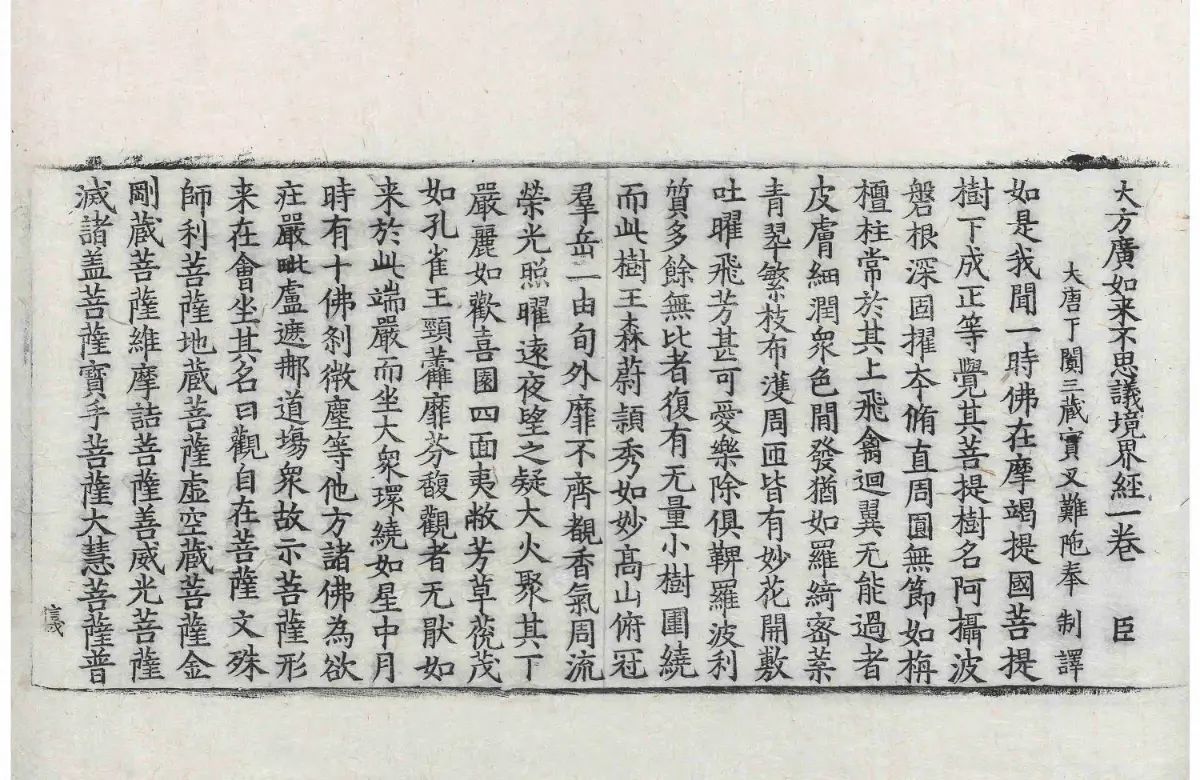 大方廣如来不思議境界經一卷 臣
大唐于闐三藏實叉難陁奉 制譯
如是我聞一時佛在摩竭提國菩提
樹下成正等覺其菩提樹名阿攝波
磐根深固擢夲脩直周圓無節如栴
檀柱常於其上飛禽迴翼无能過者
皮膚細潤衆色間發猶如羅綺宻葉
青翠繁枝布濩周匝皆有妙花開敷
吐曜飛芳甚可愛樂除俱鞞羅波利
質多餘無比者復有无量小樹圍繞
而此樹王森蔚頴秀如妙高山俯冠
羣岳一由旬外靡不齊覩香氣周流
榮光照曜遠夜望之疑大火聚其下
嚴麗如歡喜園四面夷敞芳草莸茂
如孔雀王頸藿靡芬馥觀者无猒如
来於此端嚴而坐大衆環繞如星中月
時有十佛刹微塵等他方諸佛為欲
庄嚴毗盧遮那道塲衆故示菩薩形
来在會坐其名曰觀自在菩薩 文殊
師利菩薩地蔵菩薩虛空蔵菩薩金
剛蔵菩薩維摩詰菩薩善威光菩薩
滅諸盖菩薩寶手菩薩大慧菩薩普
信義